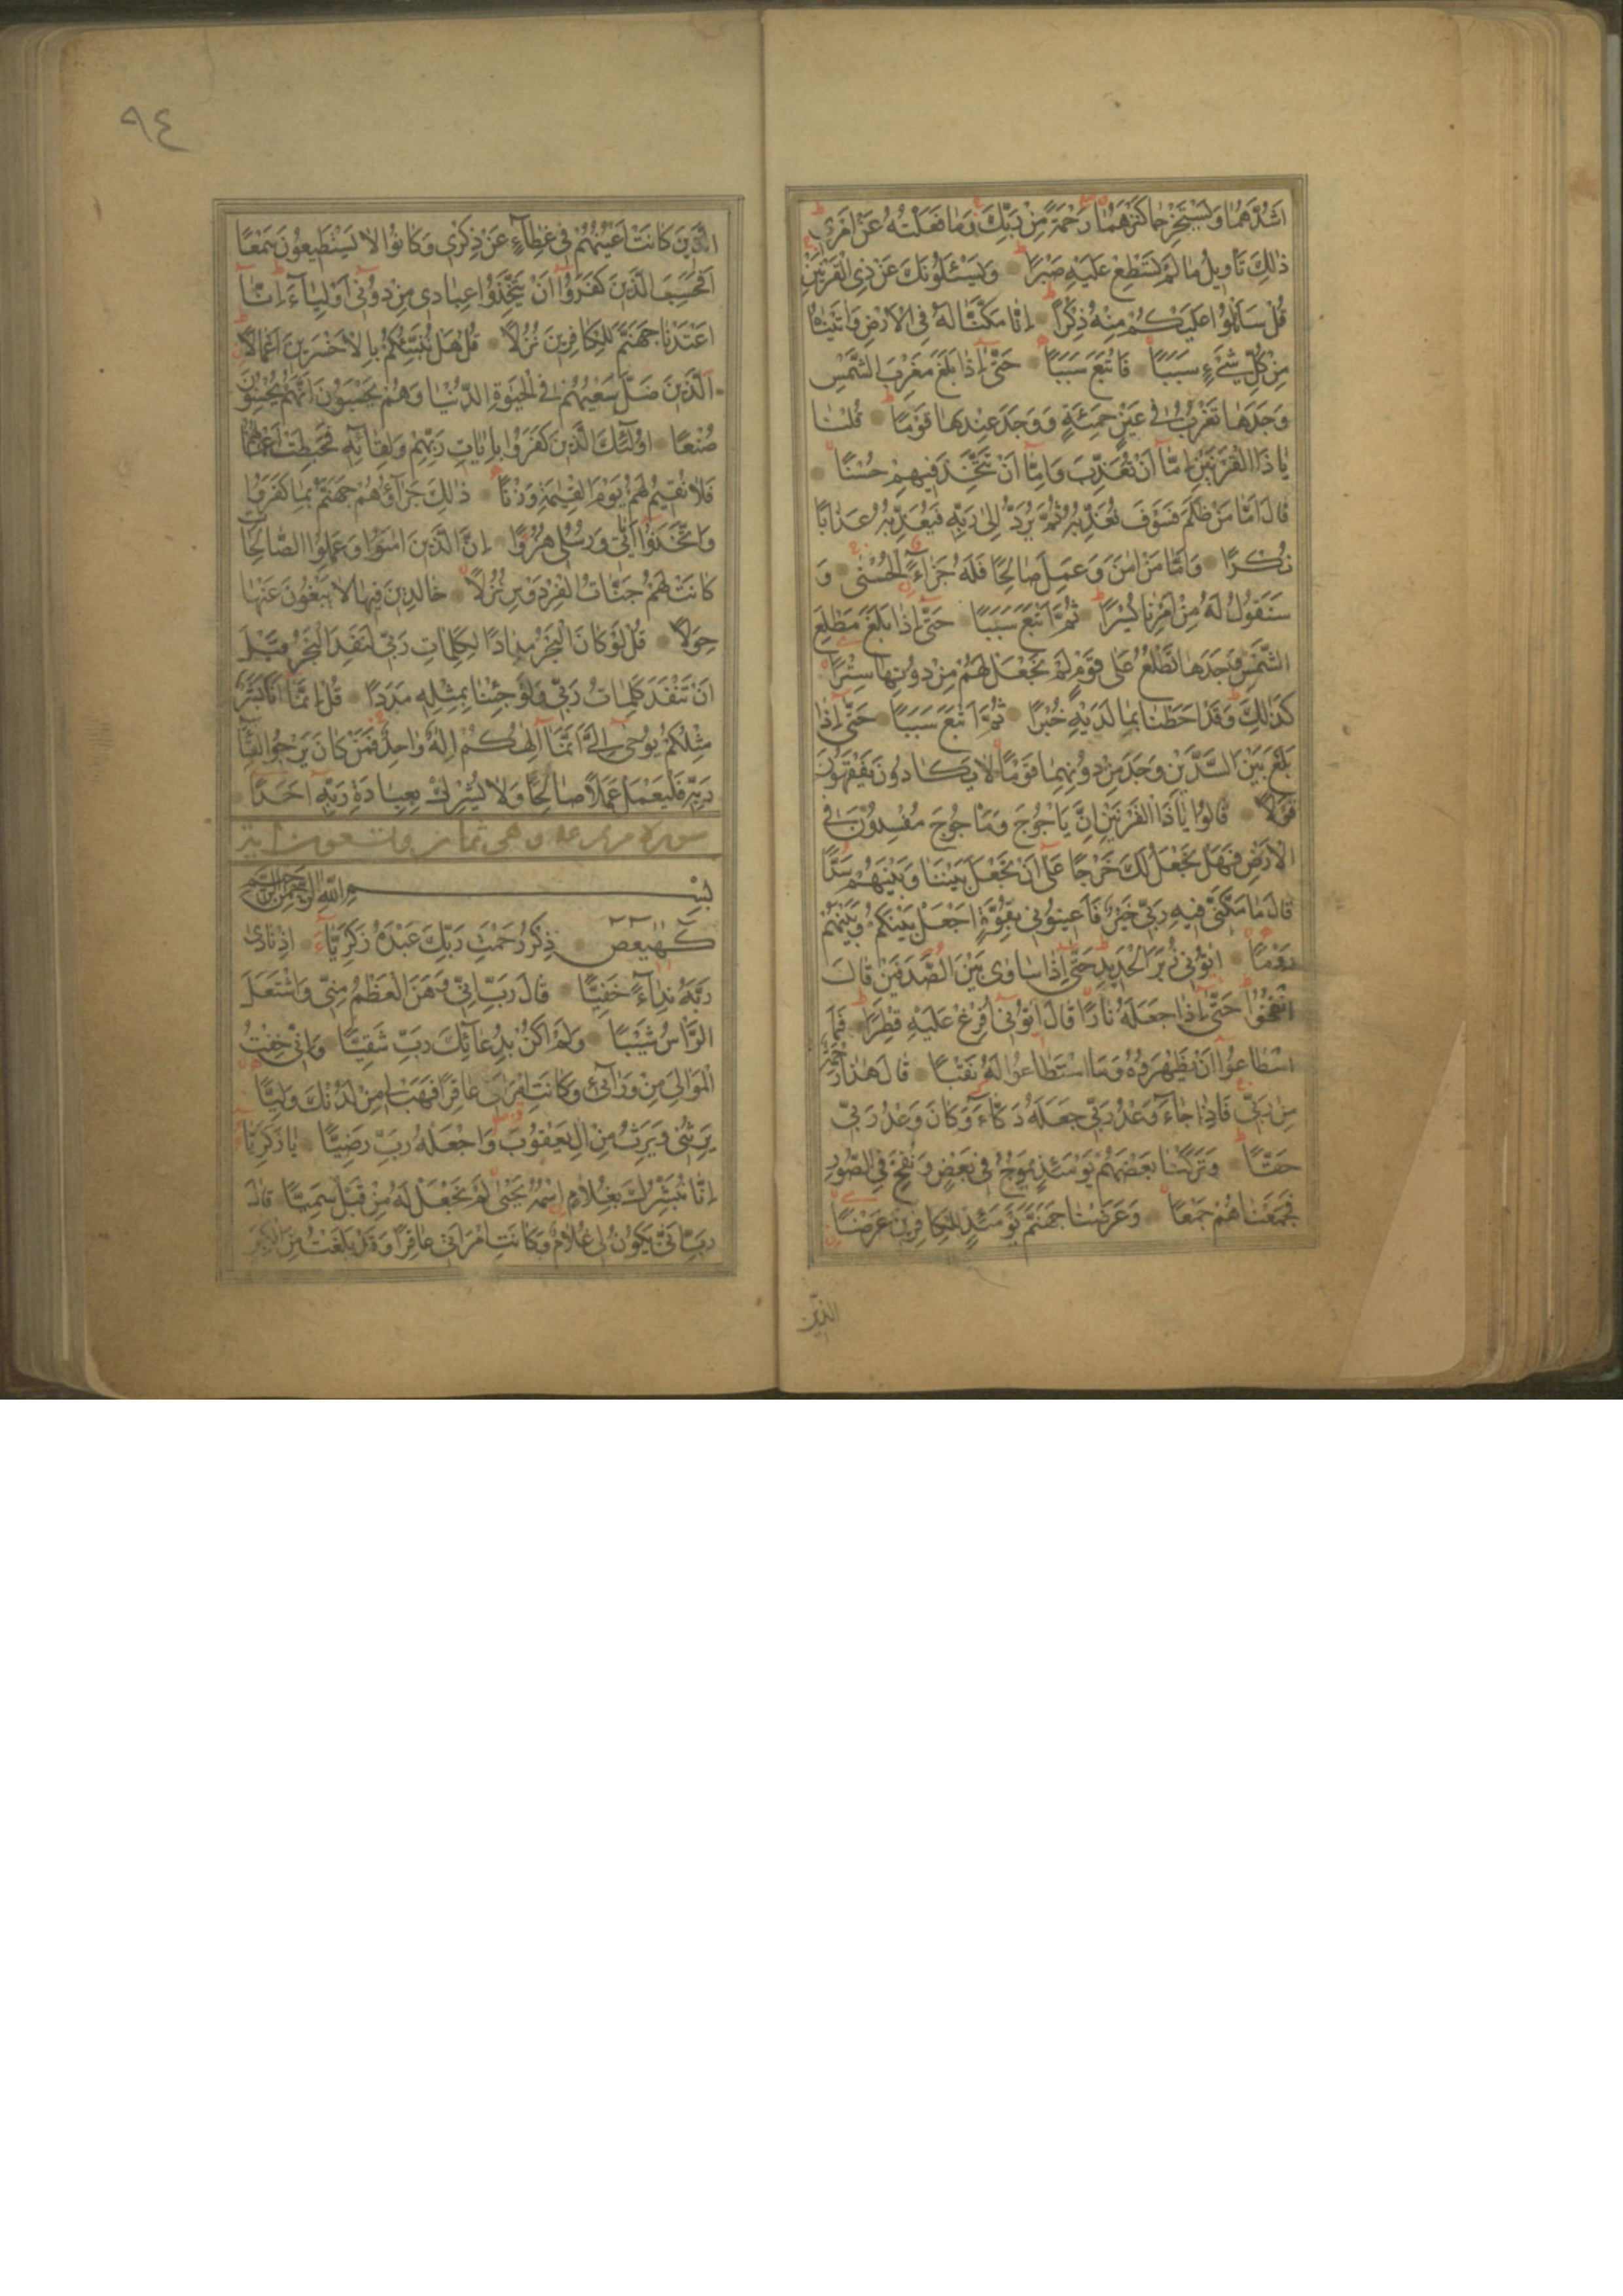 اَشُدَّهُمَا وَيَسْتَخْرِجَا كَنْزَهُمَا رَحْمَةً مِنْ رَبِّكَ وَمَا فَعَلْتُهُ عَنْ اَمْرِي
ذٰلِكَ تَأْوِيلُ مَا لَمْ تَسْطِعْ عَلَيْهِ صَبْرًا وَيَسْئَلُونَكَ عَنْ ذِي الْقَرْنَيْنِ
قُلْ سَاَتْلُوا عَلَيْكُمْ مِنْهُ ذِكْرًا اِنَّا مَكَّنَّا لَهُ فِي الْاَرْضِ وَاٰتَيْنَاهُ
مِنْ كُلِّ شَيْءٍ سَبَبًا فَاَتْبَعَ سَبَبًا حَتّٰى اِذَا بَلَغَ مَغْرِبَ الشَّمْسِ
وَجَدَهَا تَغْرُبُ فِي عَيْنٍ حَمِئَةٍ وَوَجَدَ عِنْدَهَا قَوْمًا قُلْنَا
يَا ذَا الْقَرْنَيْنِ اِمَّا اَنْ تُعَذِّبَ وَاِمَّا اَنْ تَتَّخِذَ فِيهِمْ حُسْنًا
قَالَ اَمَّا مَنْ ظَلَمَ فَسَوْفَ نُعَذِّبُهُ ثُمَّ يُرَدُّ اِلٰى رَبِّهِ فَيُعَذِّبُهُ عَذَابًا
نُكْرًا وَاَمَّا مَنْ اٰمَنَ وَعَمِلَ صَالِحًا فَلَهُ جَزَاءً الْحُسْنٰى وَ
سَنَقُولُ لَهُ مِنْ اَمْرِنَا يُسْرًا ثُمَّ اَتْبَعَ سَبَبًا حَتّٰى اِذَا بَلَغَ مَطْلِعَ
الشَّمْسِ وَجَدَهَا تَطْلُعُ عَلٰى قَوْمٍ لَمْ نَجْعَلْ لَهُمْ مِنْ دُونِهَا سِتْرًا
كَذٰلِكَ وَقَدْ اَحَطْنَا بِمَا لَدَيْهِ خُبْرًا ثُمَّ اَتْبَعَ سَبَبًا حَتّٰى اِذَا
بَلَغَ بَيْنَ السَّدَّيْنِ وَجَدَ مِنْ دُونِهِمَا قَوْمًا لَا يَكَادُونَ يَفْقَهُونَ
قَوْلًا قَالُوا يَا ذَا الْقَرْنَيْنِ اِنَّ يَاْجُوجَ وَمَاْجُوجَ مُفْسِدُونَ فِي
الْاَرْضِ فَهَلْ نَجْعَلُ لَكَ خَرْجًا عَلٰى اَنْ تَجْعَلَ بَيْنَنَا وَبَيْنَهُمْ سَدًّا
قَالَ مَا مَكَّنِّي فِيهِ رَبِّي خَيْرٌ فَاَعِينُونِي بِقُوَّةٍ اَجْعَلْ بَيْنَكُمْ وَبَيْنَهُمْ
رَدْمًا اٰتُونِي زُبَرَ الْحَدِيدِ حَتّٰى اِذَا سَاوٰى بَيْنَ الصَّدَفَيْنِ قَالَ
انْفُخُوا حَتّٰى اِذَا جَعَلَهُ نَارًا قَالَ اٰتُونِي اُفْرِغْ عَلَيْهِ قِطْرًا فَمَا
اسْطَاعُوا اَنْ يَظْهَرُوهُ وَمَا اسْتَطَاعُوا لَهُ نَقْبًا قَالَ هٰذَا رَحْمَةٌ
مِنْ رَبِّي فَاِذَا جَاءَ وَعْدُ رَبِّي جَعَلَهُ دَكَّاءَ وَكَانَ وَعْدُ رَبِّي
حَقًّا وَتَرَكْنَا بَعْضَهُمْ يَوْمَئِذٍ يَمُوجُ فِي بَعْضٍ وَنُفِخَ فِي الصُّورِ
فَجَمَعْنَاهُمْ جَمْعًا وَعَرَضْنَا جَهَنَّمَ يَوْمَئِذٍ لِلْكَافِرِينَ عَرْضًا
الَّذِينَ
٩٤
الَّذِينَ كَانَتْ اَعْيُنُهُمْ فِي غِطَاءٍ عَنْ ذِكْرِي وَكَانُوا لَا يَسْتَطِيعُونَ سَمْعًا
اَفَحَسِبَ الَّذِينَ كَفَرُوا اَنْ يَتَّخِذُوا عِبَادِي مِنْ دُونِي اَوْلِيَاءَ اِنَّا
اَعْتَدْنَا جَهَنَّمَ لِلْكَافِرِينَ نُزُلًا قُلْ هَلْ نُنَبِّئُكُمْ بِالْاَخْسَرِينَ اَعْمَالًا
اَلَّذِينَ ضَلَّ سَعْيُهُمْ فِي الْحَيٰوةِ الدُّنْيَا وَهُمْ يَحْسَبُونَ اَنَّهُمْ يُحْسِنُونَ
صُنْعًا اُولٰئِكَ الَّذِينَ كَفَرُوا بِاٰيَاتِ رَبِّهِمْ وَلِقَائِهِ فَحَبِطَتْ اَعْمَالُهُمْ
فَلَا نُقِيمُ لَهُمْ يَوْمَ الْقِيٰمَةِ وَزْنًا ذٰلِكَ جَزَاؤُهُمْ جَهَنَّمُ بِمَا كَفَرُوا
وَاتَّخَذُوا اٰيَاتِي وَرُسُلِي هُزُوًا اِنَّ الَّذِينَ اٰمَنُوا وَعَمِلُوا الصَّالِحَاتِ
كَانَتْ لَهُمْ جَنَّاتُ الْفِرْدَوْسِ نُزُلًا خَالِدِينَ فِيهَا لَا يَبْغُونَ عَنْهَا
حِوَلًا قُلْ لَوْ كَانَ الْبَحْرُ مِدَادًا لِكَلِمَاتِ رَبِّي لَنَفِدَ الْبَحْرُ قَبْلَ
اَنْ تَنْفَدَ كَلِمَاتُ رَبِّي وَلَوْ جِئْنَا بِمِثْلِهِ مَدَدًا قُلْ اِنَّمَا اَنَا بَشَرٌ
مِثْلُكُمْ يُوحٰى اِلَيَّ اَنَّمَا اِلٰهُكُمْ اِلٰهٌ وَاحِدٌ فَمَنْ كَانَ يَرْجُوا لِقَاءَ
رَبِّهِ فَلْيَعْمَلْ عَمَلًا صَالِحًا وَلَا يُشْرِكْ بِعِبَادَةِ رَبِّهِ اَحَدًا
سورة مريم وهي ثمان وتسعون اية
بِسْمِ اللهِ الرَّحْمٰنِ الرَّحِيمِ
كهيعص ذِكْرُ رَحْمَتِ رَبِّكَ عَبْدَهُ زَكَرِيَّاءَ اِذْ نَادٰى
رَبَّهُ نِدَاءً خَفِيًّا قَالَ رَبِّ اِنِّي وَهَنَ الْعَظْمُ مِنِّي وَاشْتَعَلَ
الرَّأْسُ شَيْبًا وَلَمْ اَكُنْ بِدُعَائِكَ رَبِّ شَقِيًّا وَاِنِّي خِفْتُ
الْمَوَالِيَ مِنْ وَرَائِي وَكَانَتِ امْرَاَتِي عَاقِرًا فَهَبْ لِي مِنْ لَدُنْكَ وَلِيًّا
يَرِثُنِي وَيَرِثُ مِنْ اٰلِ يَعْقُوبَ وَاجْعَلْهُ رَبِّ رَضِيًّا يَا زَكَرِيَّا
اِنَّا نُبَشِّرُكَ بِغُلَامٍ اسْمُهُ يَحْيٰى لَمْ نَجْعَلْ لَهُ مِنْ قَبْلُ سَمِيًّا قَالَ
رَبِّ اَنّٰى يَكُونُ لِي غُلَامٌ وَكَانَتِ امْرَاَتِي عَاقِرًا وَقَدْ بَلَغْتُ مِنَ الْكِبَرِ